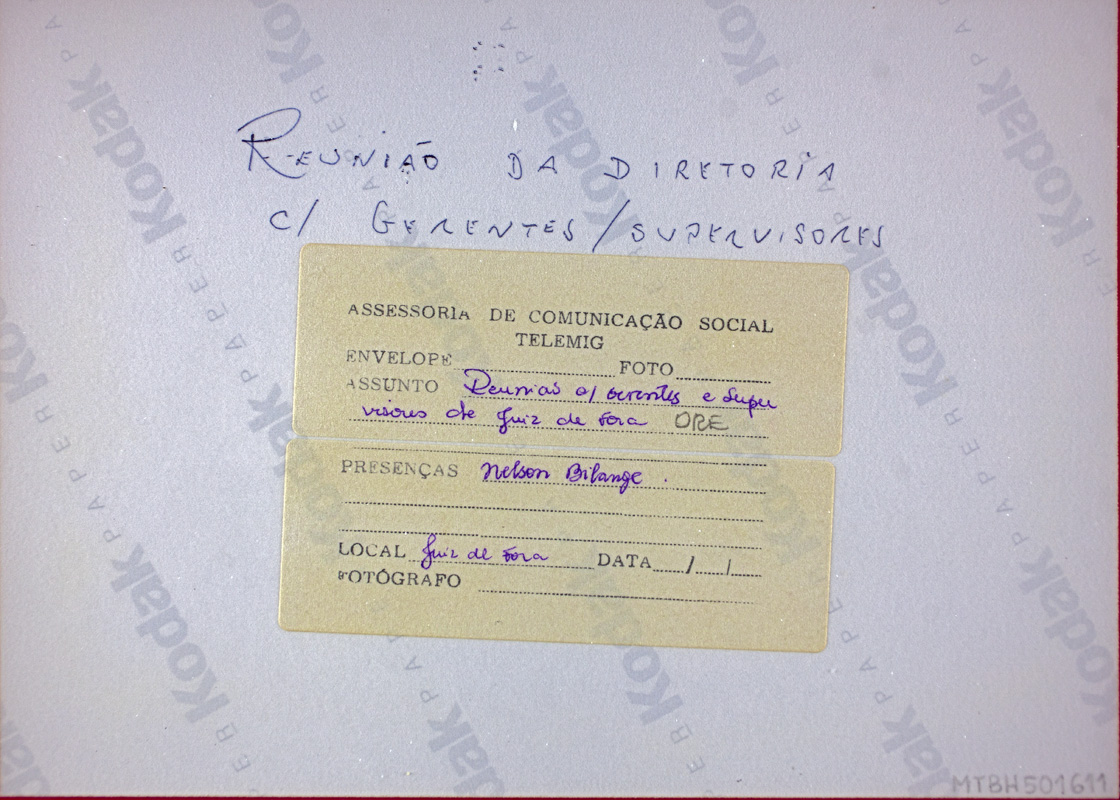 REUNIÃO DA DIRETORIA
C/ GERENTES/SUPERVISORES
ASSESSORIA DE COMUNICAÇÃO SOCIAL
TELEMIG
ENVELOPE FOTO
ASSUNTO Reunião c/ Gerentes e Super
visores de Juiz de Fora ORE
PRESENÇAS Nelson Bilange.
LOCAL Juiz de Fora DATA / /
FOTÓGRAFO
MTBH501611
Kodak PAPER